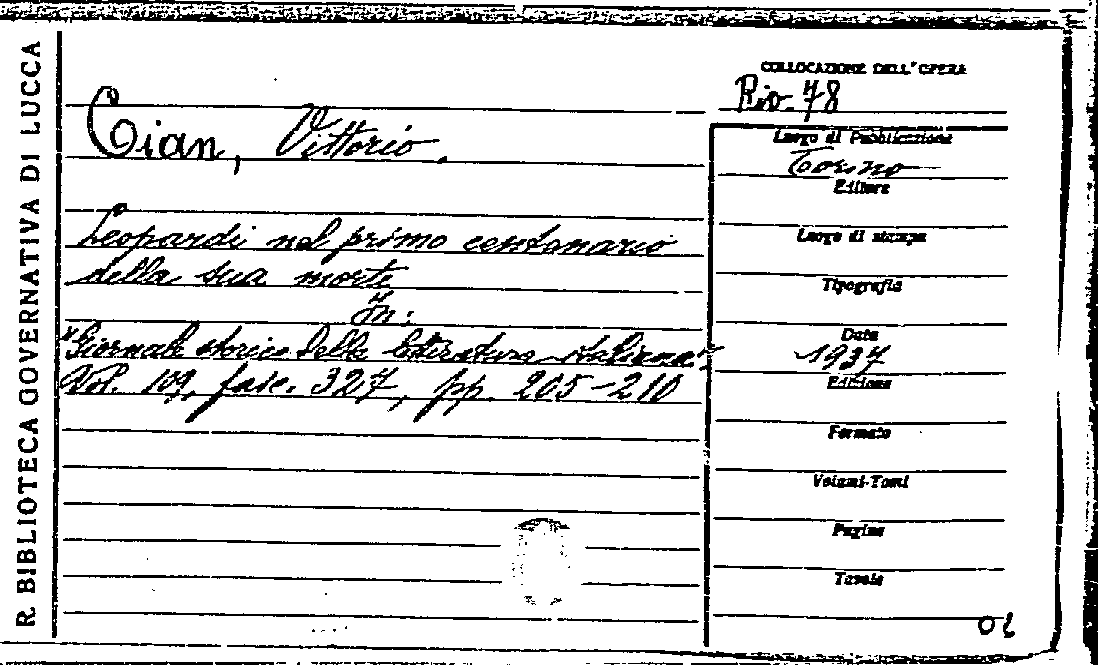 R. BIBLIOTECA GOVERNATIVA DI LUCCA
COLLOCAZIONE DELL'OPERA
Riv. 78
Cian, Vittorio.
Leopardi nel primo centenario
della sua morte
In:
"Giornale storico della letteratura italiana."
Vol. 109, fasc. 327, pp. 205-210
Luogo di Pubblicazione
Torino
Editore
Luogo di stampa
Tipografia
Data
1937
Edizione
Formato
Volumi-Tomi
Pagine
Tavole